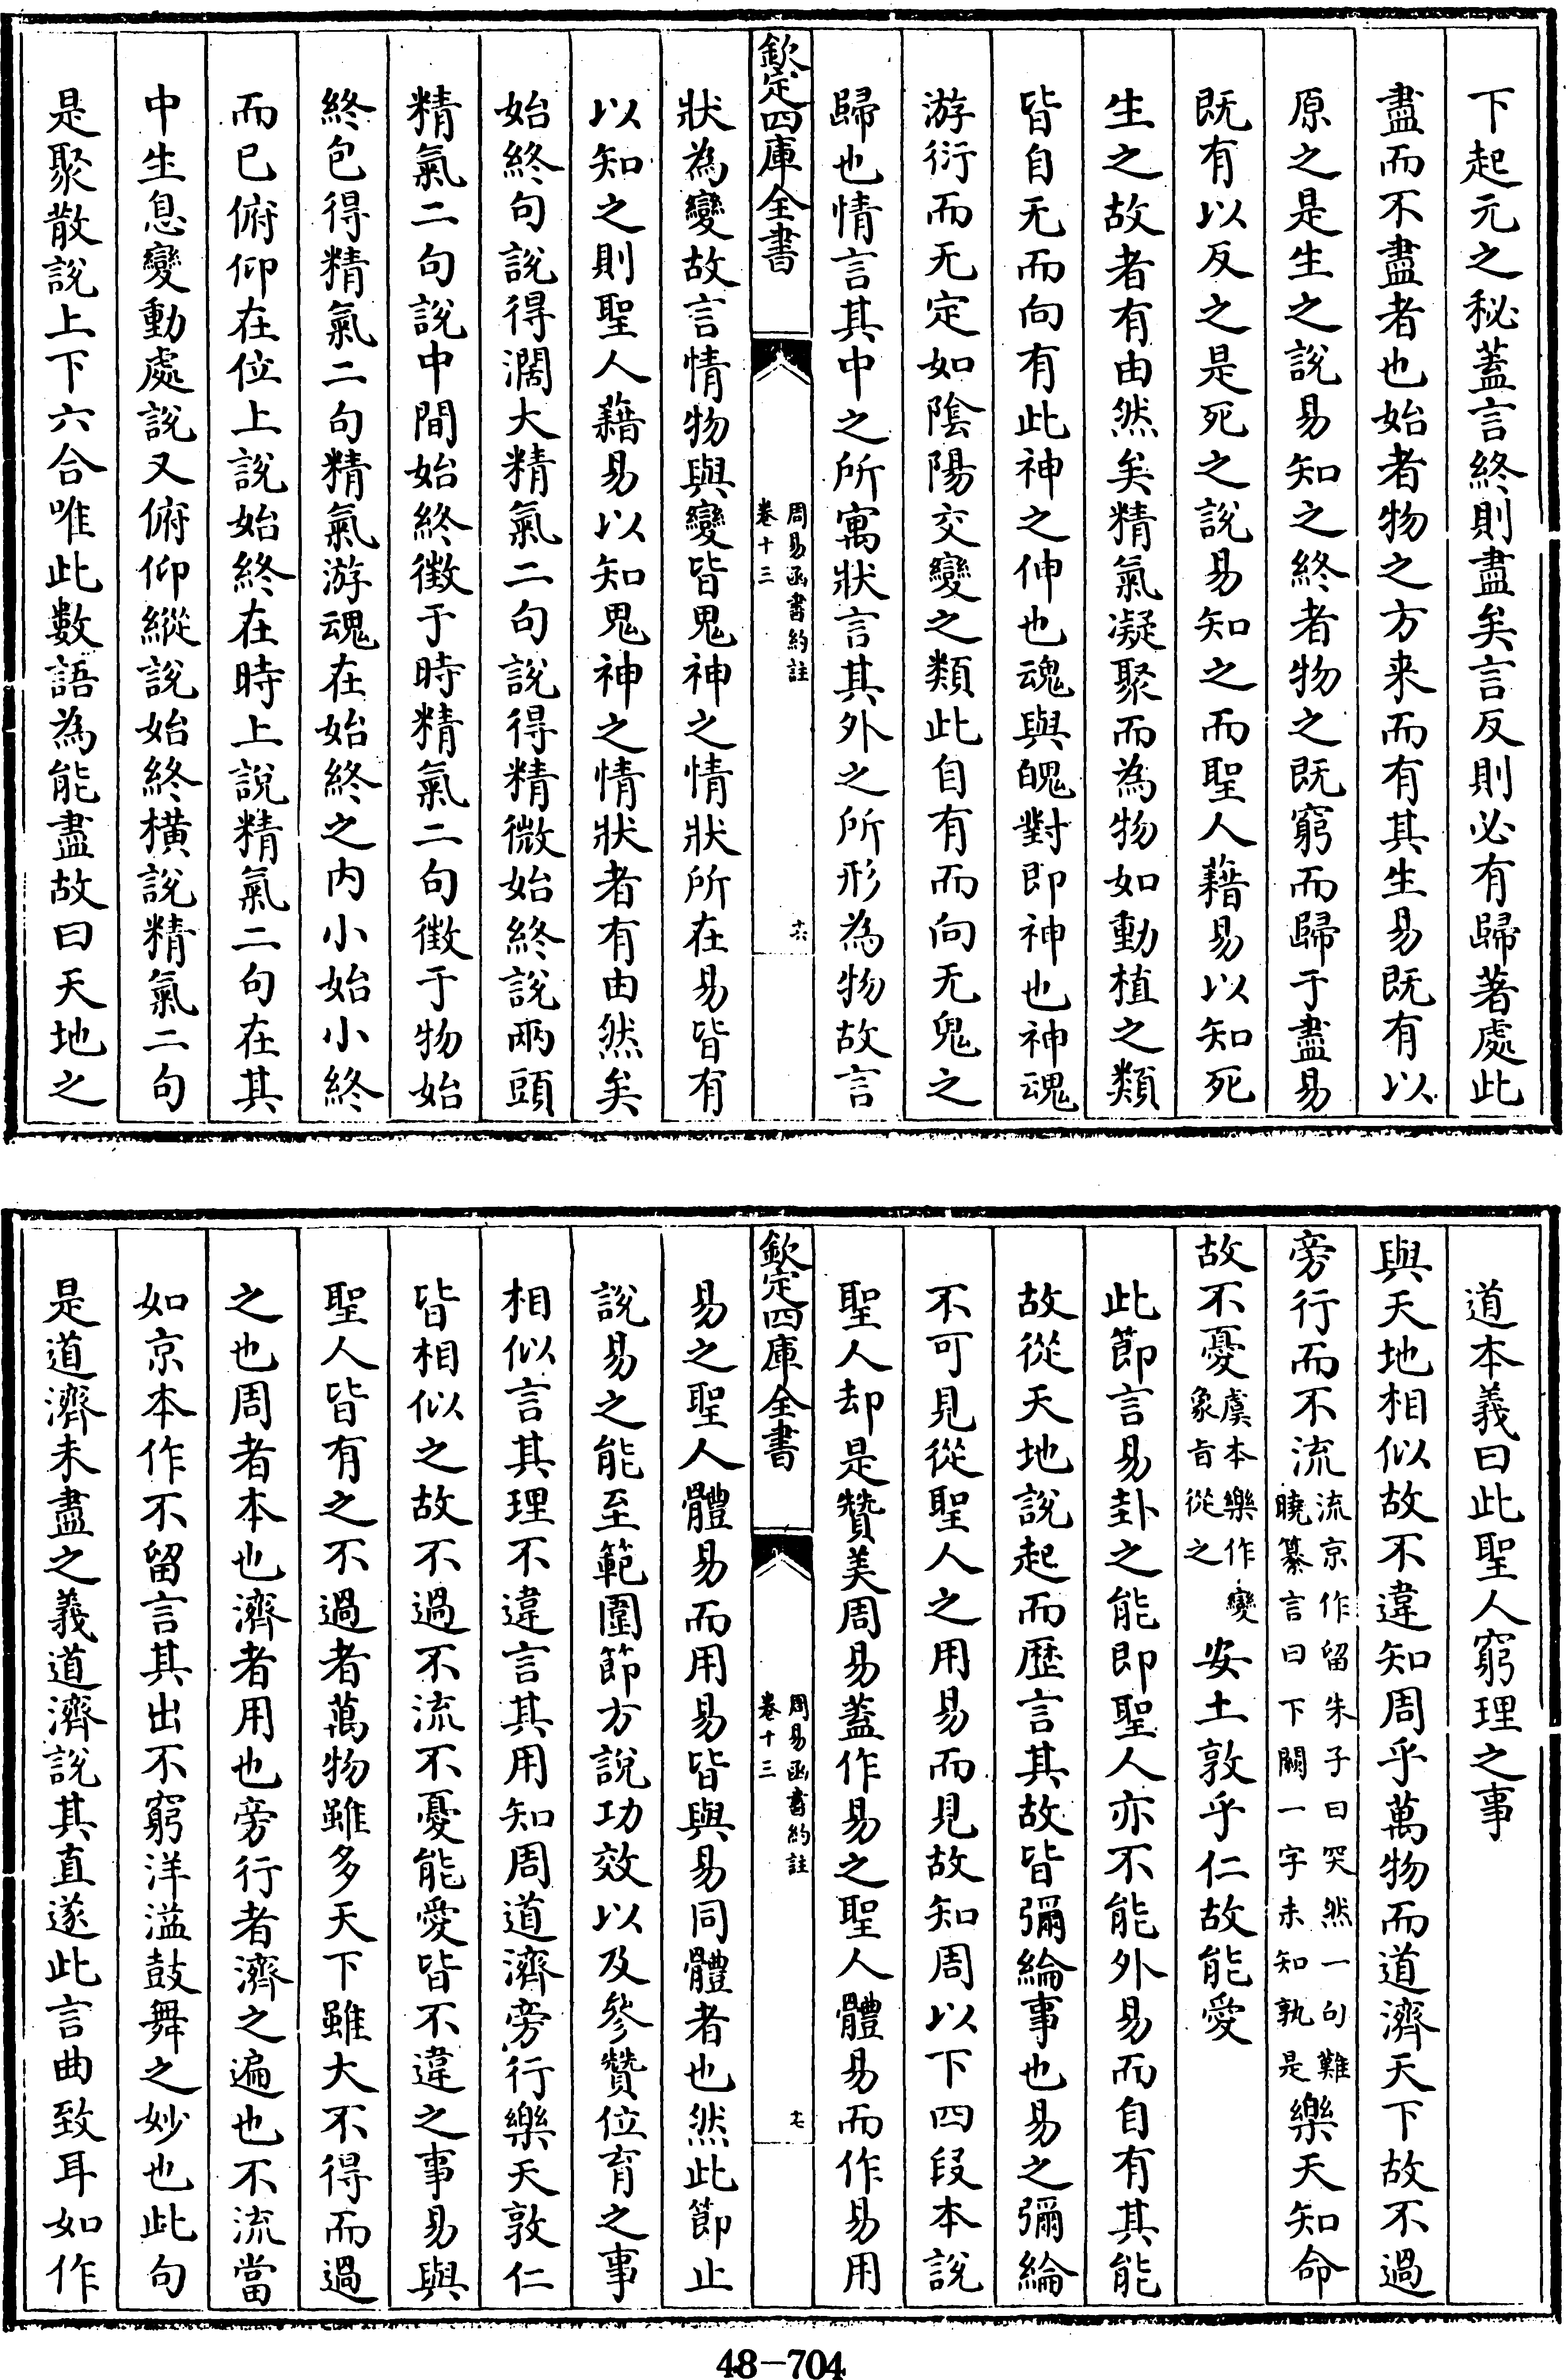 下起元之秘蓋言終則盡矣言反則必有歸著處此
盡而不盡者也始者物之方来而有其生易既有以
原之是生之說易知之終者物之既窮而歸于盡易
既有以反之是死之說易知之而聖人藉易以知死
生之故者有由然矣精氣凝聚而為物如動植之類
皆自无而向有此神之伸也魂與魄對即神也神魂
游衍而无定如陰陽交變之類此自有而向无鬼之
歸也情言其中之所寓狀言其外之所形為物故言
欽定四庫全書
周易函書約註
卷十三
十六
狀為變故言情物與變皆鬼神之情狀所在易皆有
以知之則聖人藉易以知鬼神之情狀者有由然矣
始終句說得濶大精氣二句說得精微始終說兩頭
精氣二句說中間始終徵于時精氣二句徵于物始
終包得精氣二句精氣游魂在始終之內小始小終
而已俯仰在位上說始終在時上說精氣二句在其
中生息變動處說又俯仰縱說始終橫說精氣二句
是聚散說上下六合唯此數語為能盡故曰天地之
道本義曰此聖人窮理之事
與天地相似故不違知周乎萬物而道濟天下故不過
旁行而不流流京作留朱子曰突然一句難曉纂言曰下闕一字未知孰是樂天知命
故不憂虞本樂作變象旨從之安土敦乎仁故能愛
此節言易卦之能即聖人亦不能外易而自有其能
故從天地說起而歷言其故皆彌綸事也易之彌綸
不可見從聖人之用易而見故知周以下四段本說
聖人却是贊美周易蓋作易之聖人體易而作易用
欽定四庫全書
周易函書約註
卷十三
十七
易之聖人體易而用易皆與易同體者也然此節止
說易之能至範圍節方說功效以及參贊位育之事
相似言其理不違言其用知周道濟旁行樂天敦仁
皆相似之故不過不流不憂能愛皆不違之事易與
聖人皆有之不過者萬物雖多天下雖大不得而過
之也周者本也濟者用也旁行者濟之遍也不流當
如京本作不留言其出不窮洋溢鼓舞之妙也此句
是道濟未盡之義道濟說其直遂此言曲致耳如作
48-704